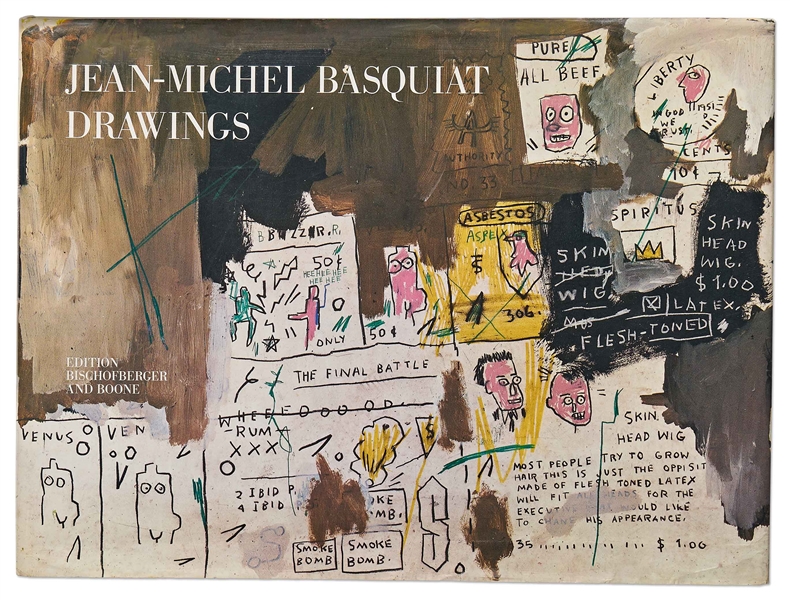 JEAN-MICHEL BASQUIAT
DRAWINGS
PURE
ALL BEEF
LIBERTY
1951
IN GOD
WE
TRUST
CENTS
10¢
AUTHORITY
NO. 33
ASBESTOS
ASBE
306.
SPIRITUS
SKIN
HEAD
WIG.
$1.00
SKIN
WIG.
LATEX.
FLESH-TONED
50¢
HEE HEE HEE
HEE HEE
ONLY
50¢
EDITION
BISCHOFBERGER
AND BOONE
THE FINAL BATTLE
-RUM-
XXX
VENUS
VEN
2 IBID P.
4 IBID
$
KE
MB.
SMOKE
BOMB
SMOKE
BOMB.
SKIN
HEAD WIG
MOST PEOPLE TRY TO GROW
HAIR THIS IS JUST THE OPPISIT
MADE OF FLESH TONED LATEX
WILL FIT ALL HEADS FOR THE
WOULD LIKE
TO CHANGE HIS APPEARANCE.
35 $1.00